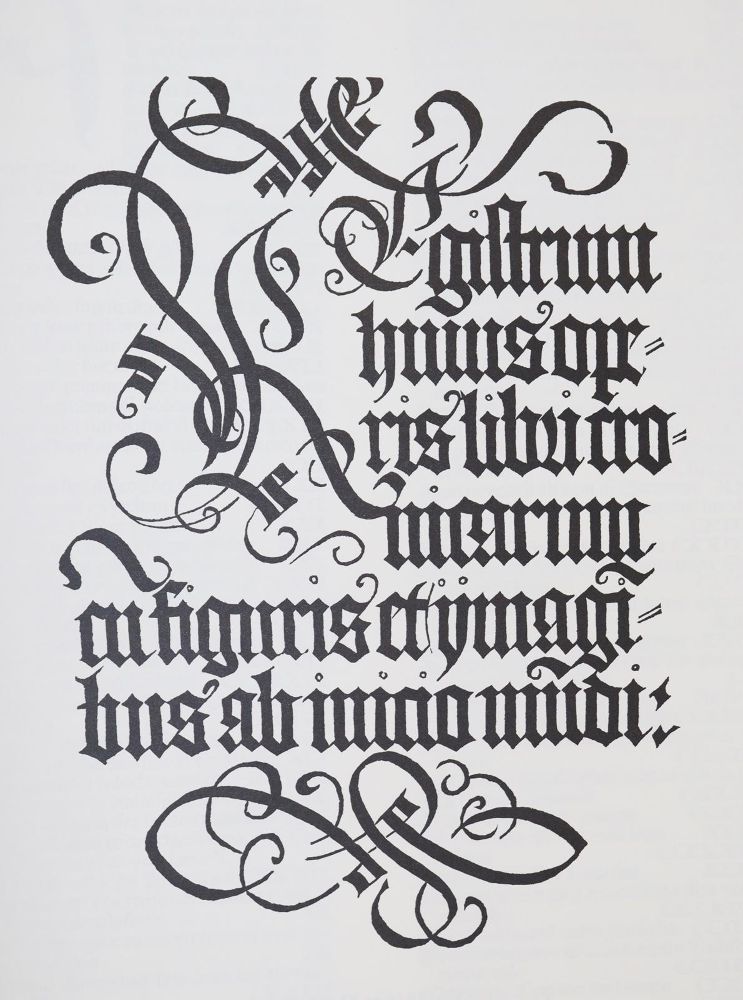 REgiſtrum
huius ope=
ris libri cro=
nicarum
cū figuris et ymagī=
bus ab inicio mūdi: